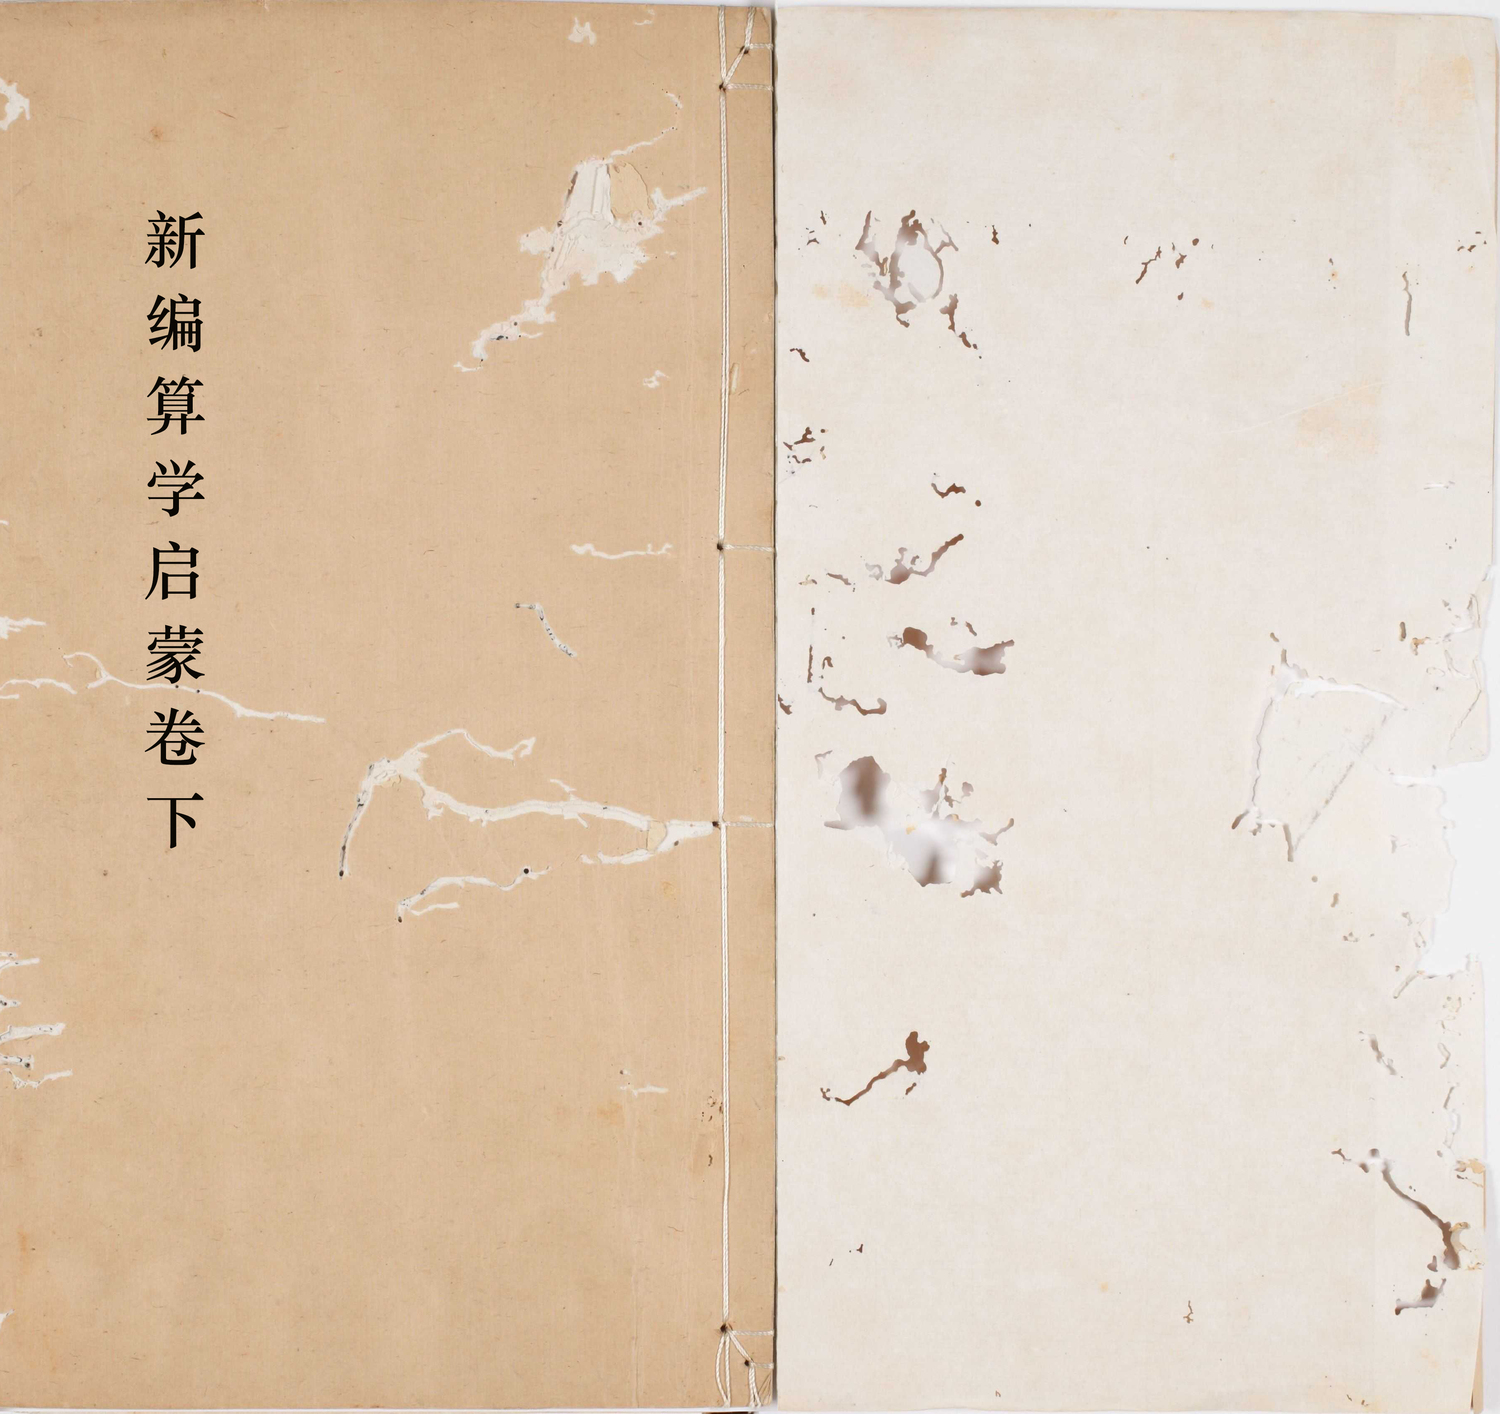 新编算学启蒙卷下